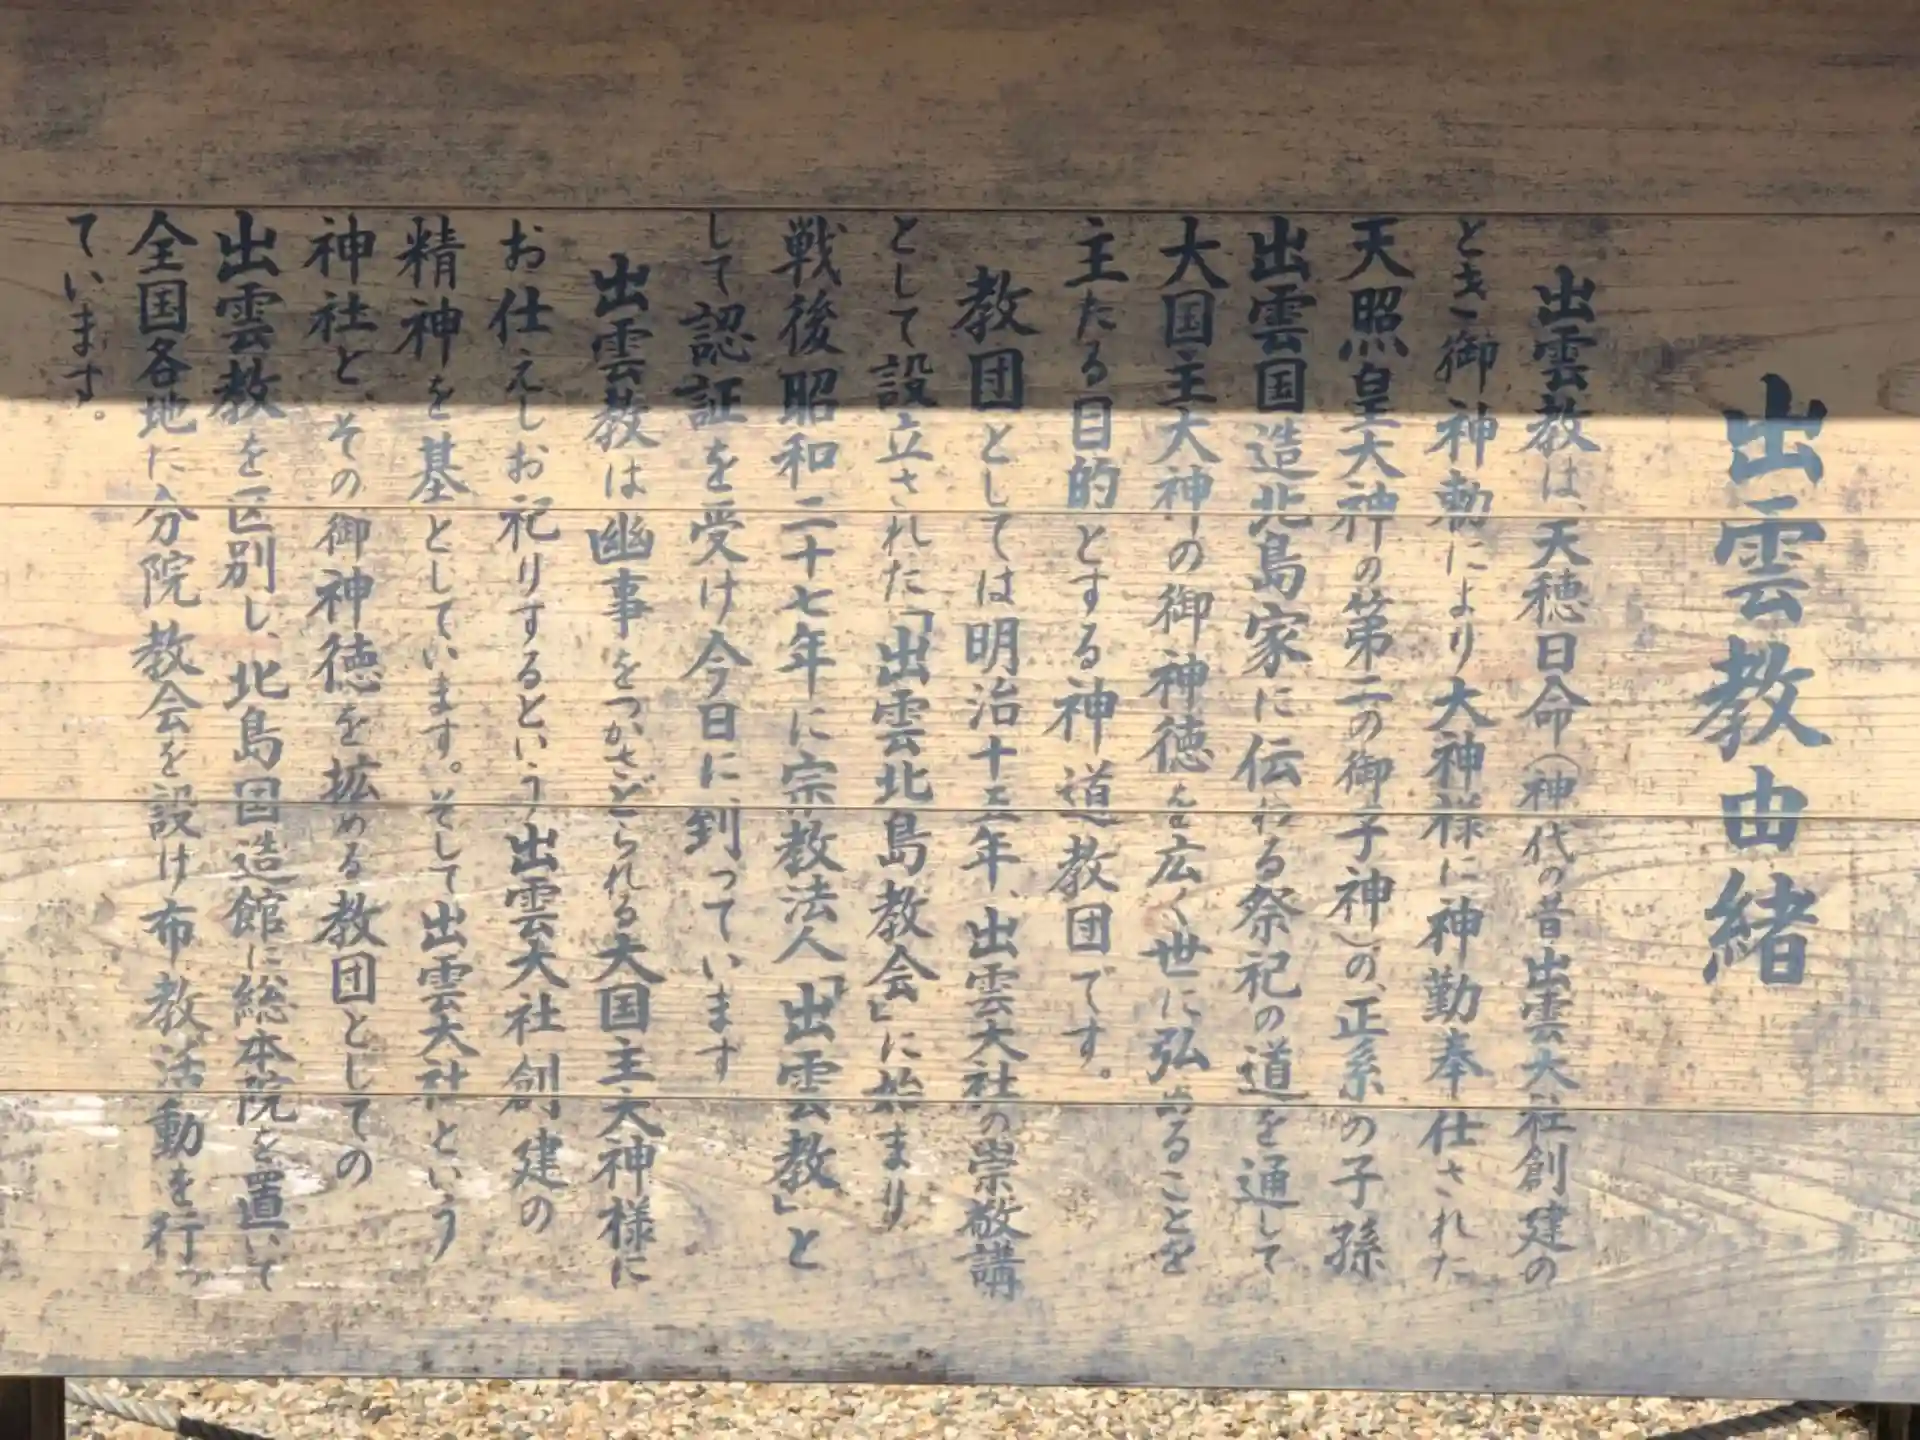 出雲教由緒
出雲教は、天穂日命（神代の昔出雲大社創建の
とき御神勅により大神様に神勤奉仕された
天照皇大神の第二の御子神）の、正系の子孫
出雲国造北島家に伝わる祭祀の道を通して
大国主大神の御神徳を広く世に弘めることを
主たる目的とする神道教団です。
教団としては明治十五年、出雲大社の崇敬講
として設立された「出雲北島教会」に始まり
戦後昭和二十七年に宗教法人「出雲教」と
して認証を受け今日に到っています
出雲教は幽事をつかさどられる大国主大神様に
お仕えしお祀りするという、出雲大社創建の
精神を基としています。そして出雲大社という
神社と、その御神徳を拡める教団としての
出雲教を区別し、北島国造館に総本院を置いて
全国各地に分院教会を設け布教活動を行っ
ています。